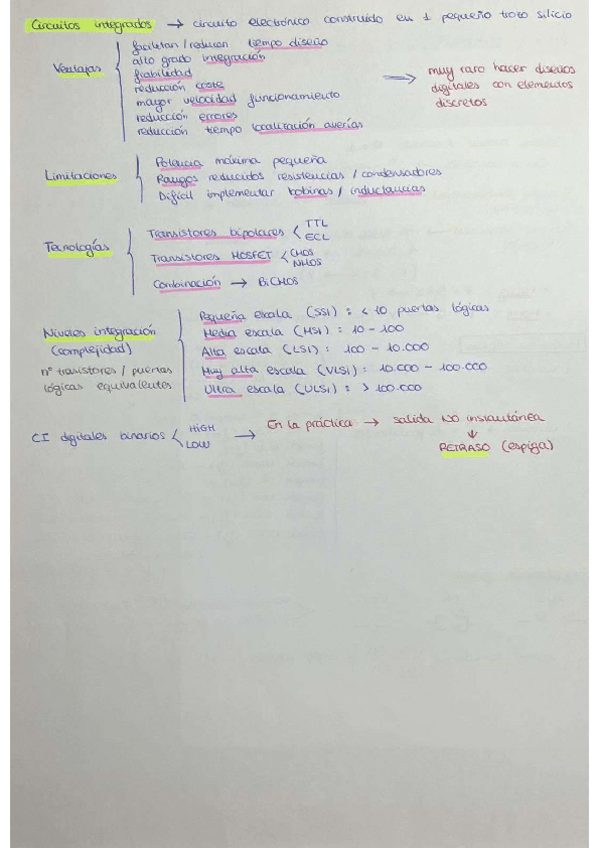 Circuitos integrados → circuito electrónico construido en 1 pequeño trozo silicio
Ventajas
facilitan / reducen tiempo diseño
alto grado integración
fiabilidad
reducción coste
mayor velocidad funcionamiento
reducción errores
reducción tiempo localización averías
→ muy raro hacer diseños
digitales con elementos
discretos
Limitaciones
Potencia máxima pequeña
Rangos reducidos resistencias / condensadores
Difícil implementar bobinas / inductancias
Tecnologías
Transistores bipolares < TTL
ECL
Transistores MOSFET < CMOS
NMOS
Combinación → BiCMOS
Niveles integración
(complejidad)
nº transistores / puertas
lógicas equivalentes
Pequeña escala (SSI) : < 10 puertas lógicas
Media escala (MSI) : 10 - 100
Alta escala (LSI) : 100 - 10.000
Muy alta escala (VLSI) : 10.000 - 100.000
Ultra escala (ULSI) : > 100.000
CI digitales binarios < HIGH
LOW
→ En la práctica → salida NO instantánea
↓
RETRASO (espiga)